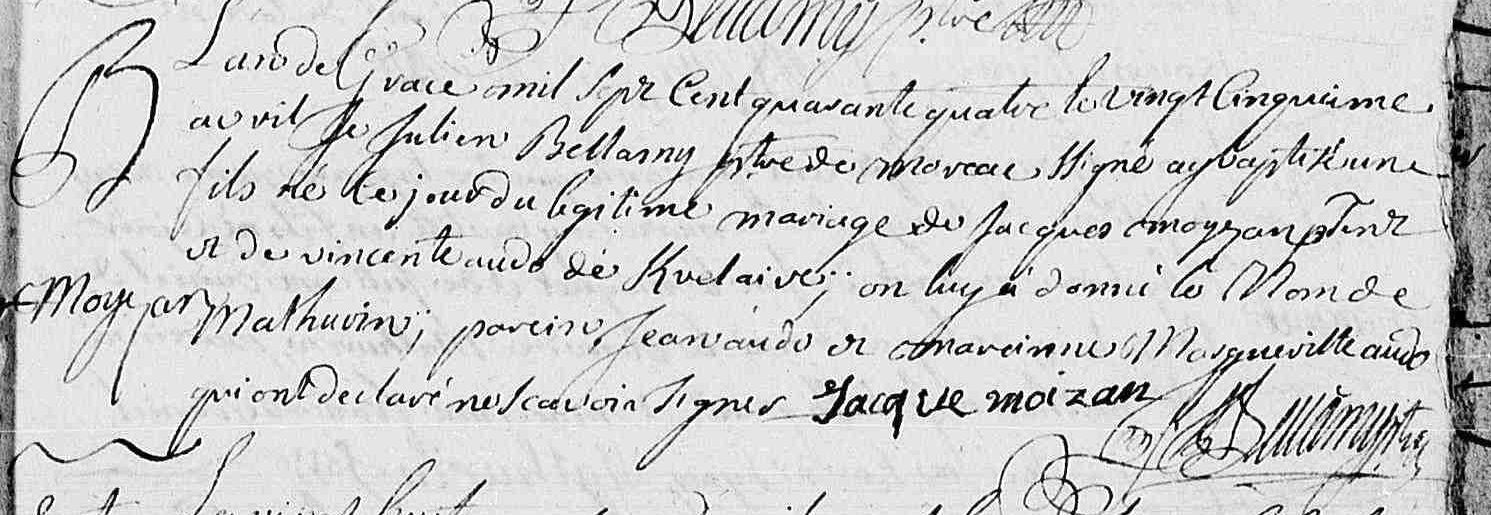 Bellamy ptre
B
L'an de Grace mil sept Cent quarante quatre le vingt Cinquieme
avril Je Julien Bellamy ptre de moreac ssigné ay baptisé une
fils né le jour du legitime mariage de Jacques moyzan
et de vincente audo de Kvelaire; on luy a donné le Nom de
Moyzan Mathurin; parein Jean audo et mareinne audo
qui ont declaré ne scavoir signer Jacque moizan
Bellamy ptre